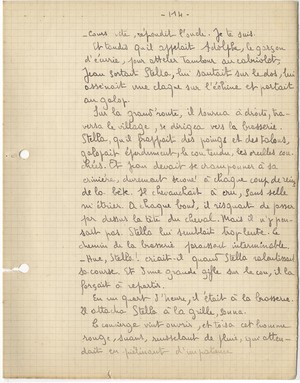 - 114 -
cours - de, répondit l'oncle. Je te suis.
Et tandis qu'il appelait Adolphe, le garçon
d'écurie, pour atteler Tambour au cabriolet,
Jean sortait Stella, lui sautait sur le dos, lui
assénait une claque sur l'échine et partait
au galop.
Sur la grand'route, il tourna à droite, tra-
versa le village, se dirigea vers la brasserie.
Stella, qu'il frappait des poings et des talons,
galopait éperdument, le cou tendu, les oreilles cou-
chées. Et Jean devait se cramponner à sa
crinière, durement secoué à chaque coup de reins
de la bête. Il chevauchait à cru, sans selle
ni étrier. A chaque bond, il risquait de passer
par dessus la tête du cheval. Mais il n'y pen-
sait pas. Stella lui semblait trop lente. Le
chemin de la brasserie paraissait interminable.
- Hue, Stella ! criait-il quand Stella ralentissait
sa course. Et d'une grande gifle sur le cou, il la
forçait à repartir.
En un quart d'heure, il était à la brasserie.
Il attacha Stella à la grille, sonna.
Le concierge vint ouvrir, et toisa cet homme
rouge, suant, ruisselant de pluie, qui atten-
dait en piétinant d'impatience